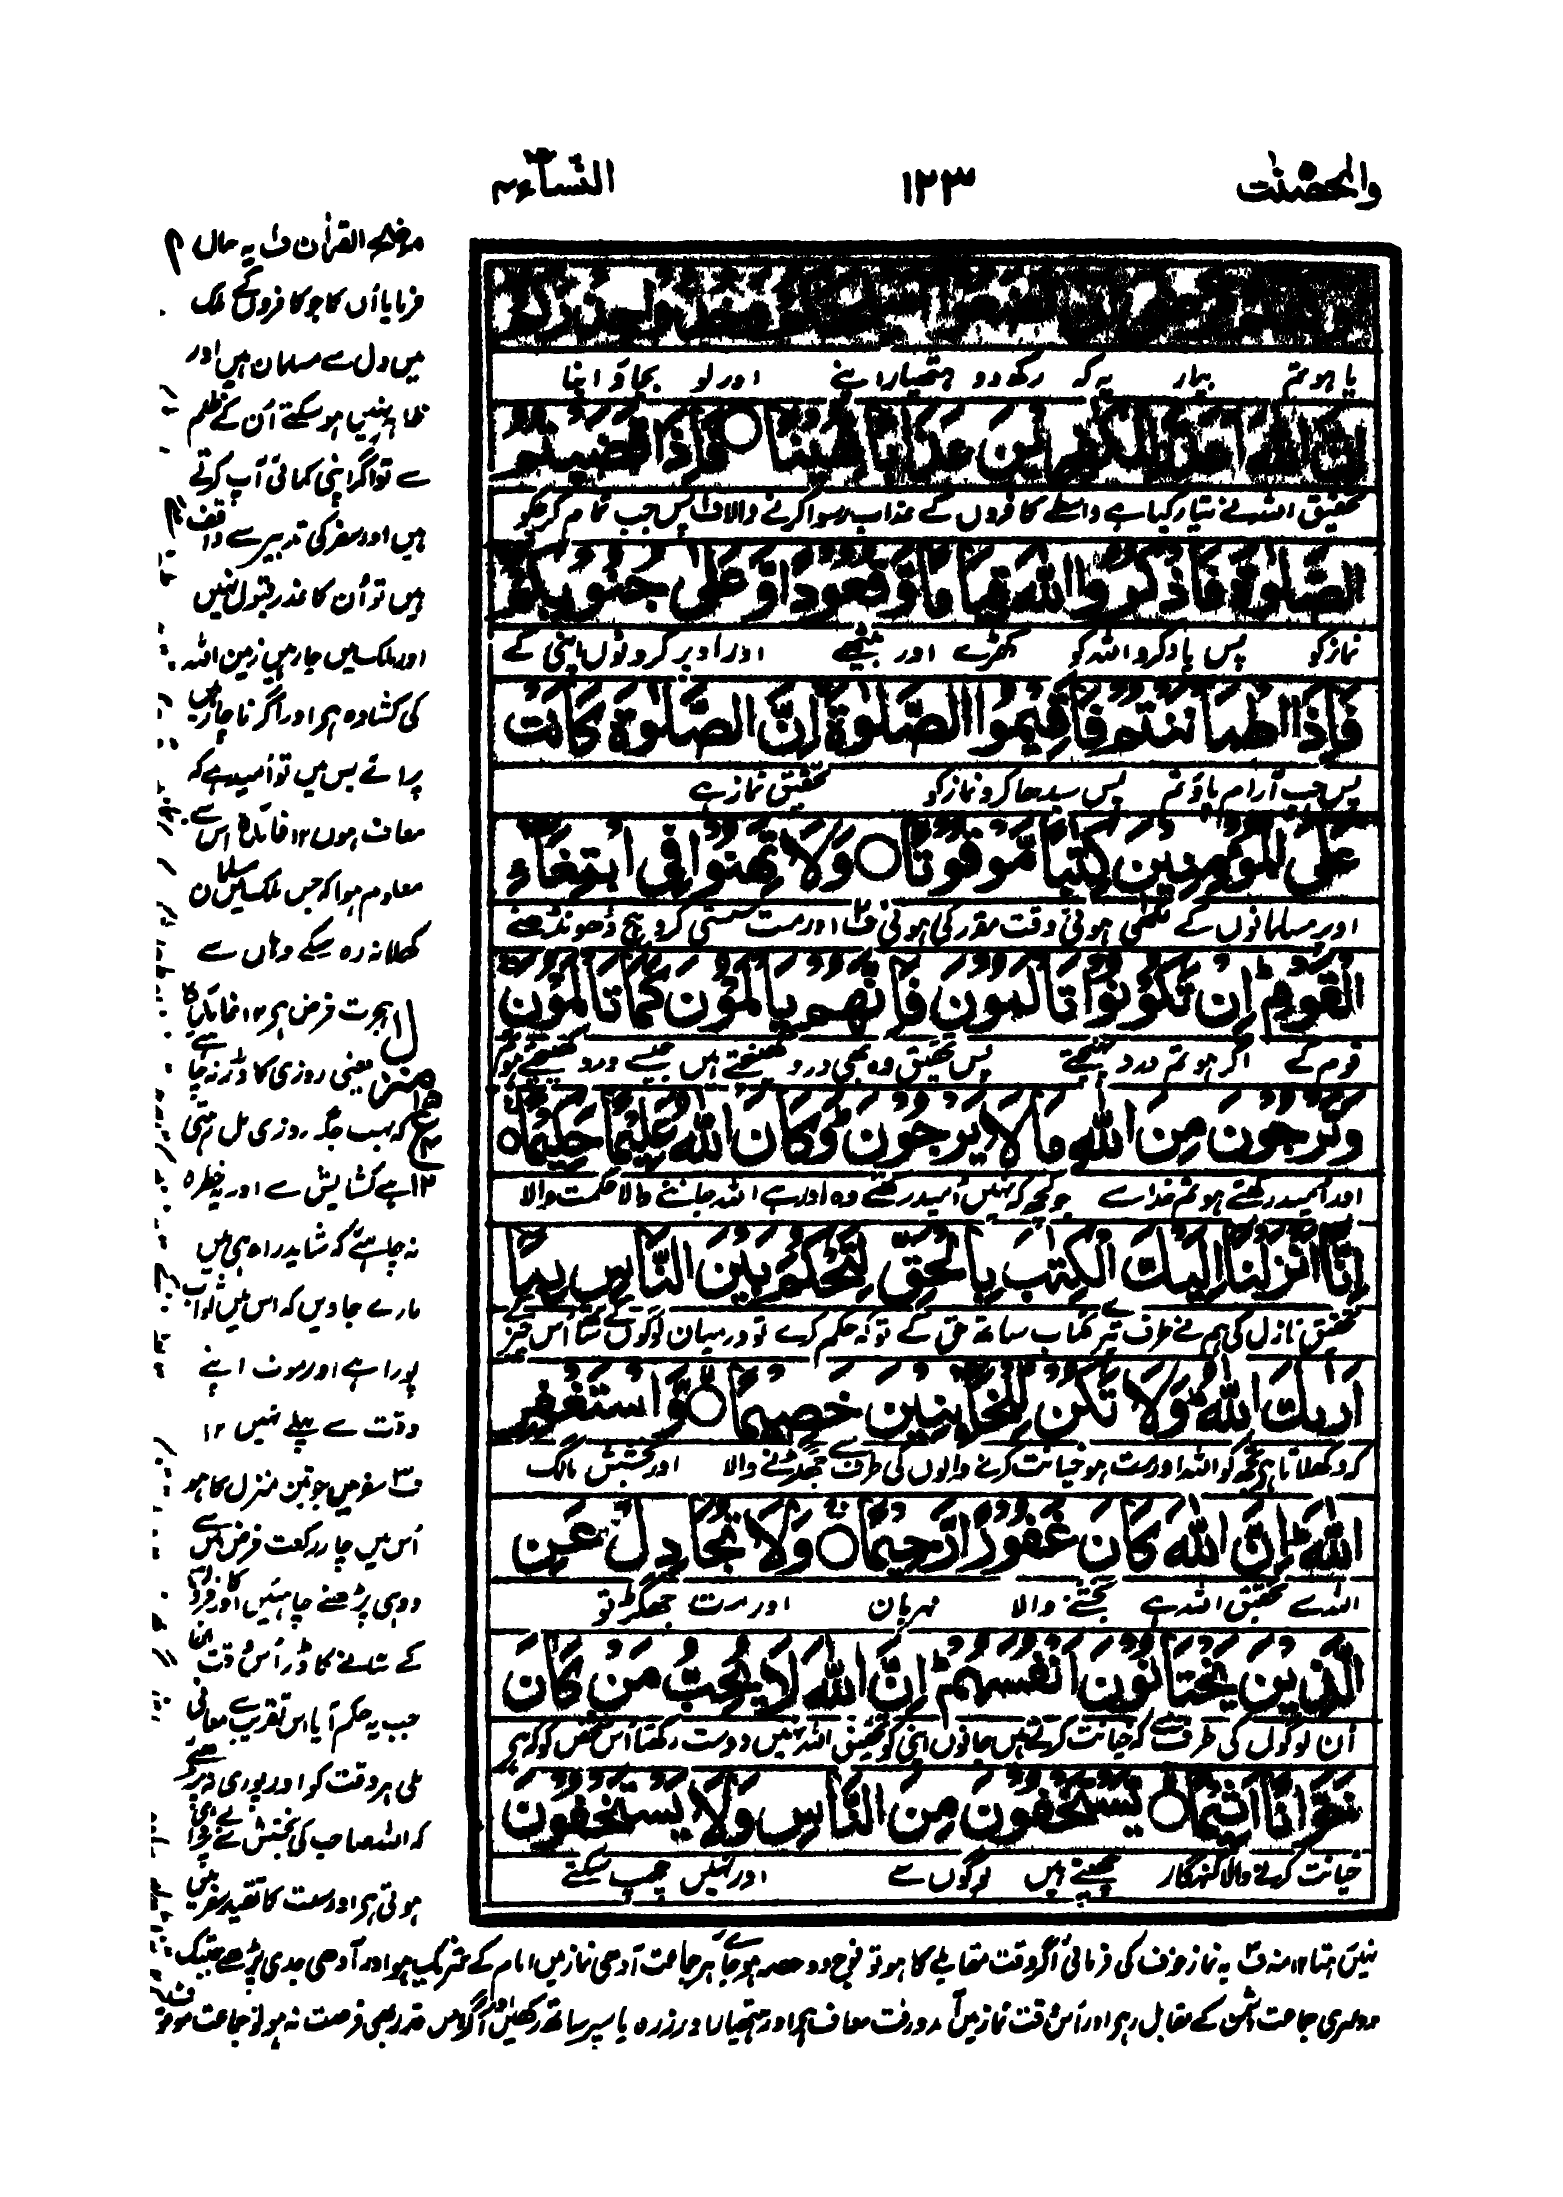 والمحصنت ١٢٣ النساء ٤
یا ہو تم بیمار یہ کہ رکھ دو ہتھیار اپنے اور لو بچاؤ اپنا
إِنَّ اللهَ أَعَدَّ لِلْكٰفِرِينَ عَذَابًا مُّهِينًا ○ فَإِذَا قَضَيْتُمُ
تحقیق اللہ نے تیار کیا ہے واسطے کافروں کے عذاب رسوا کرنے والا ف پس جب تمام کر چکو
الصَّلٰوةَ فَاذْكُرُوا اللهَ قِيَامًا وَّقُعُودًا وَّعَلٰى جُنُوبِكُمْ
نماز کو پس یاد کرو اللہ کو کھڑے اور بیٹھے اور اوپر کروٹوں اپنی کے
فَإِذَا اطْمَأْنَنْتُمْ فَأَقِيمُوا الصَّلٰوةَ إِنَّ الصَّلٰوةَ كَانَتْ
پس جب آرام پاؤ تم پس سیدھا کرو نماز کو تحقیق نماز ہے
عَلَى الْمُؤْمِنِينَ كِتٰبًا مَّوْقُوتًا ○ وَلَا تَهِنُوا فِي ابْتِغَاءِ
اوپر مسلمانوں کے لکھی ہوئی وقت مقرر کی ہوئی ف اور مت سستی کرو بیچ ڈھونڈھنے
الْقَوْمِ إِنْ تَكُونُوا تَأْلَمُونَ فَإِنَّهُمْ يَأْلَمُونَ كَمَا تَأْلَمُونَ
قوم کے اگر ہو تم درد کھینچتے پس تحقیق وہ بھی درد کھینچتے ہیں جیسے درد کھینچتے ہو تم
وَتَرْجُونَ مِنَ اللهِ مَا لَا يَرْجُونَ وَكَانَ اللهُ عَلِيمًا حَكِيمًا ○
اور امید رکھتے ہو تم خدا سے جو کچھ کہ نہیں امید رکھتے وہ اور ہے اللہ جاننے والا حکمت والا
إِنَّا أَنْزَلْنَا إِلَيْكَ الْكِتٰبَ بِالْحَقِّ لِتَحْكُمَ بَيْنَ النَّاسِ بِمَا
تحقیق نازل کی ہم نے طرف تیرے کتاب ساتھ حق کے تو کہ حکم کرے تو درمیان لوگوں کے ساتھ اس چیز کے
أَرٰىكَ اللهُ وَلَا تَكُنْ لِّلْخَائِنِينَ خَصِيمًا ○ وَّاسْتَغْفِرِ
کہ دکھلاتا ہے تجھ کو اللہ اور مت ہو خیانت کرنے والوں کی طرف سے جھگڑنے والا اور بخشش مانگ
اللهَ إِنَّ اللهَ كَانَ غَفُورًا رَّحِيمًا ○ وَلَا تُجَادِلْ عَنِ
اللہ سے تحقیق اللہ ہے بخشنے والا مہربان اور مت جھگڑ تو
الَّذِينَ يَخْتَانُونَ أَنْفُسَهُمْ إِنَّ اللهَ لَا يُحِبُّ مَنْ كَانَ
ان لوگوں کی طرف سے کہ خیانت کرتے ہیں جانوں اپنی کو تحقیق اللہ نہیں دوست رکھتا اس شخص کو کہ ہے
خَوَّانًا أَثِيمًا ○ يَسْتَخْفُونَ مِنَ النَّاسِ وَلَا يَسْتَخْفُونَ
خیانت کرنے والا گنہگار چھپتے ہیں لوگوں سے اور نہیں چھپ سکتے
موضح القرآن ف یہ حال
فرمایا اُن کا جو کافروں کے ملک
میں دل سے مسلمان ہیں اور
ظاہر نہیں ہو سکتے اُن کے ظلم
سے تو اگر اپنی کمائی آپ کرتے
ہیں اور سفر کی تدبیر سے واقف
ہیں تو اُن کا عذر قبول نہیں
اور ملک میں جا رہیں زمین اللہ
کی کشادہ ہے اور اگر ناچار ہیں
پرائے بس میں تو امید ہے کہ
معاف ہوں ١٢ فائدہ اس سے
معلوم ہوا کہ جس ملک میں مسلمان
کھلا نہ رہ سکے وہاں سے
ہجرت فرض ہے ١٢ فائدہ
یعنی روزی کا ڈر نہ چاہئے
کہ بہت جگہ روزی مل رہتی
ہے کشایش سے اور یہ خطرہ
نہ چاہئے کہ شاید راہ ہی میں
مارے جاویں کہ اس میں ثواب
پورا ہے اور موت اپنے
وقت سے پہلے نہیں ١٢
ف سفر میں جو تین منزل کا ہو
اُس میں چار رکعت فرض سے
دو ہی پڑھنے چاہئیں اور کافروں
کے ستانے کا ڈر اُس وقت
جب یہ حکم آیا اس تقریب سے معافی
ملی ہر وقت کو اور پوری نہ
کہ اللہ صاحب کی بخشش سے
ہوتی ہے اور سنت کا تقید سفر میں
نہیں رہتا ١٢ منہ ف یہ نماز خوف کی فرمائی اگر وقت مقابلے کا ہو تو فوج دو حصہ ہو جائے ہر جماعت آدھی نماز میں امام کے شریک ہو اور آدھی جدی پڑھے جبتک
دوسری جماعت دشمن کے مقابل رہے اور اُس وقت نماز میں آمد و رفت معاف ہے اور ہتھیار اور زرہ یا سپر ساتھ رکھیں اور اگر اس قدر بھی فرصت نہ ہو تو جماعت موقوف